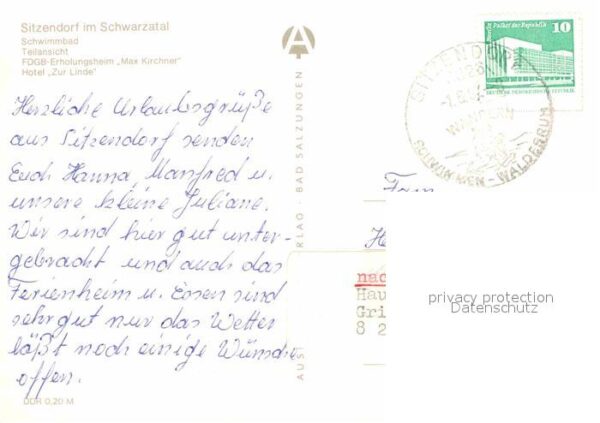 Sitzendorf im Schwarzatal
Schwimmbad
Teilansicht
FDGB-Erholungsheim „Max Kirchner"
Hotel „Zur Linde"
Herzliche Urlaubsgrüße
aus Sitzendorf senden
Euch Hanna, Manfred u.
unsere kleine Juliane.
Wir sind hier gut unter-
gebracht und auch das
Ferienheim u. Essen sind
sehr gut nur das Wetter
läßt noch einige Wünsche
offen.
DDR 0,20 M
RLAG · BAD SALZUNGEN
AUS
A
Palast der Republik
10
DEUTSCHE DEMOKRATISCHE REPUBLIK
SITZENDORF
WANDERN
SCHWIMMEN - WALDERRUH
nac
Hau
Gri
8 2
privacy protection
Datenschutz